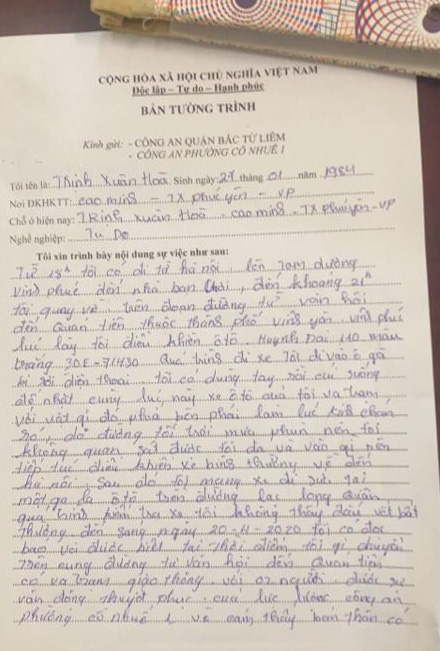 CỘNG HÒA XÃ HỘI CHỦ NGHĨA VIỆT NAM
Độc lập – Tự do – Hạnh phúc
BẢN TƯỜNG TRÌNH
Kính gửi: - CÔNG AN QUẬN BẮC TỪ LIÊM
- CÔNG AN PHƯỜNG CỔ NHUẾ 1
Tôi tên là: Trinh Xuân Hoà Sinh ngày: 27 tháng 01 năm 1984
Nơi ĐKHKTT: cao minh – TX phúc yên – VP
Chỗ ở hiện nay: Trinh xuân Hoà cao minh - TX Phúc yên - VP
Nghề nghiệp: Tu Do
Tôi xin trình bày nội dung sự việc như sau:
Từ 18h tôi có đi từ hà nội lên Tam dương
Vinh phuc đến nhà bạn chơi, đến khoảng 21h
tôi quay về trên đoạn đường từ vân hội
đến Quán tiên thuộc thành phố vinh yên vinh phuc
luc lay tôi điều khiển ôtô Huynh Dai i10 mầu
trắng 30E-71430 Quá trinh đi xe Tôi đi vào ổ gà
bị rơi điện thoai tôi có dung tay rồi cúi xuống
để nhặt cung luc này xe ôtô của tôi va trạm
với vật gì đó phia bên phải lam
do đường tối trời mưa phùn nên tôi
không quan sát được tôi đa va vào gì nên
tiếp tuc điều khiển xe binh thường về đến
hà nội, sau đó tôi mang xe đi sửa tai
một ga da ôtô tren đường lac long Quân
quá trinh kiểm tra xe tôi không thấy dấu vết bất
thường đến sáng ngày 20-11-2020 tôi có đọc
bao và được biết tai thời điểm tôi di chuyển
trên cung đường từ vân hội đến Quán tiên
có va tram giao thông với 02 người được sự
vân động thuyết phuc của lực lương công an
phường cổ nhuế 1 và cảm thấy bản thân có